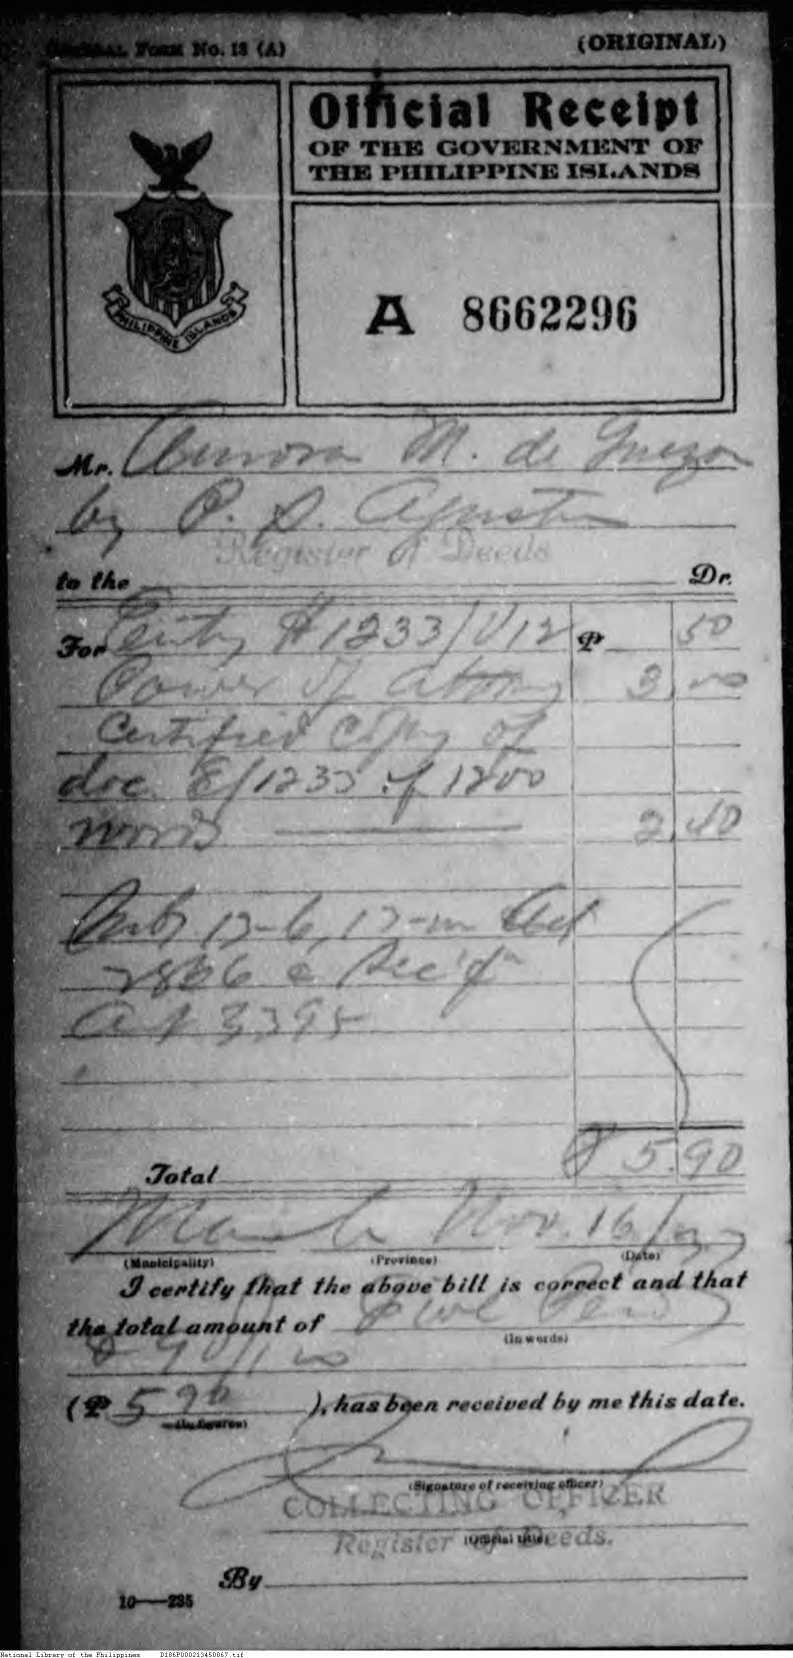 GENERAL FORM NO. 13 (A)
(ORIGINAL)
Official Receipt
OF THE GOVERNMENT OF
THE PHILIPPINE ISLANDS
PHILIPPINE ISLANDS
A 8662296
Mr. Aurora M. de Quezon
by P. S. Agustin
Register of Deeds
to the Dr.
For Entry # 1233/V12 ₱ 50
Power of attorney 3.00
Certified copy of
doc. E/1233 of 1200
words 2.40
2866 &
Act 3395
Total ₱ 5.90
Manila Nov. 16/
(Municipality) (Province) (Date)
I certify that the above bill is correct and that
the total amount of Five Pesos
(In words)
& 90/100
(₱ 5.90 ), has been received by me this date.
(In figures)
(Signature of receiving officer)
COLLECTING OFFICER
Register of Deeds.
(Official title)
By
10—235
National Library of the Philippines D186P000213450067.tif